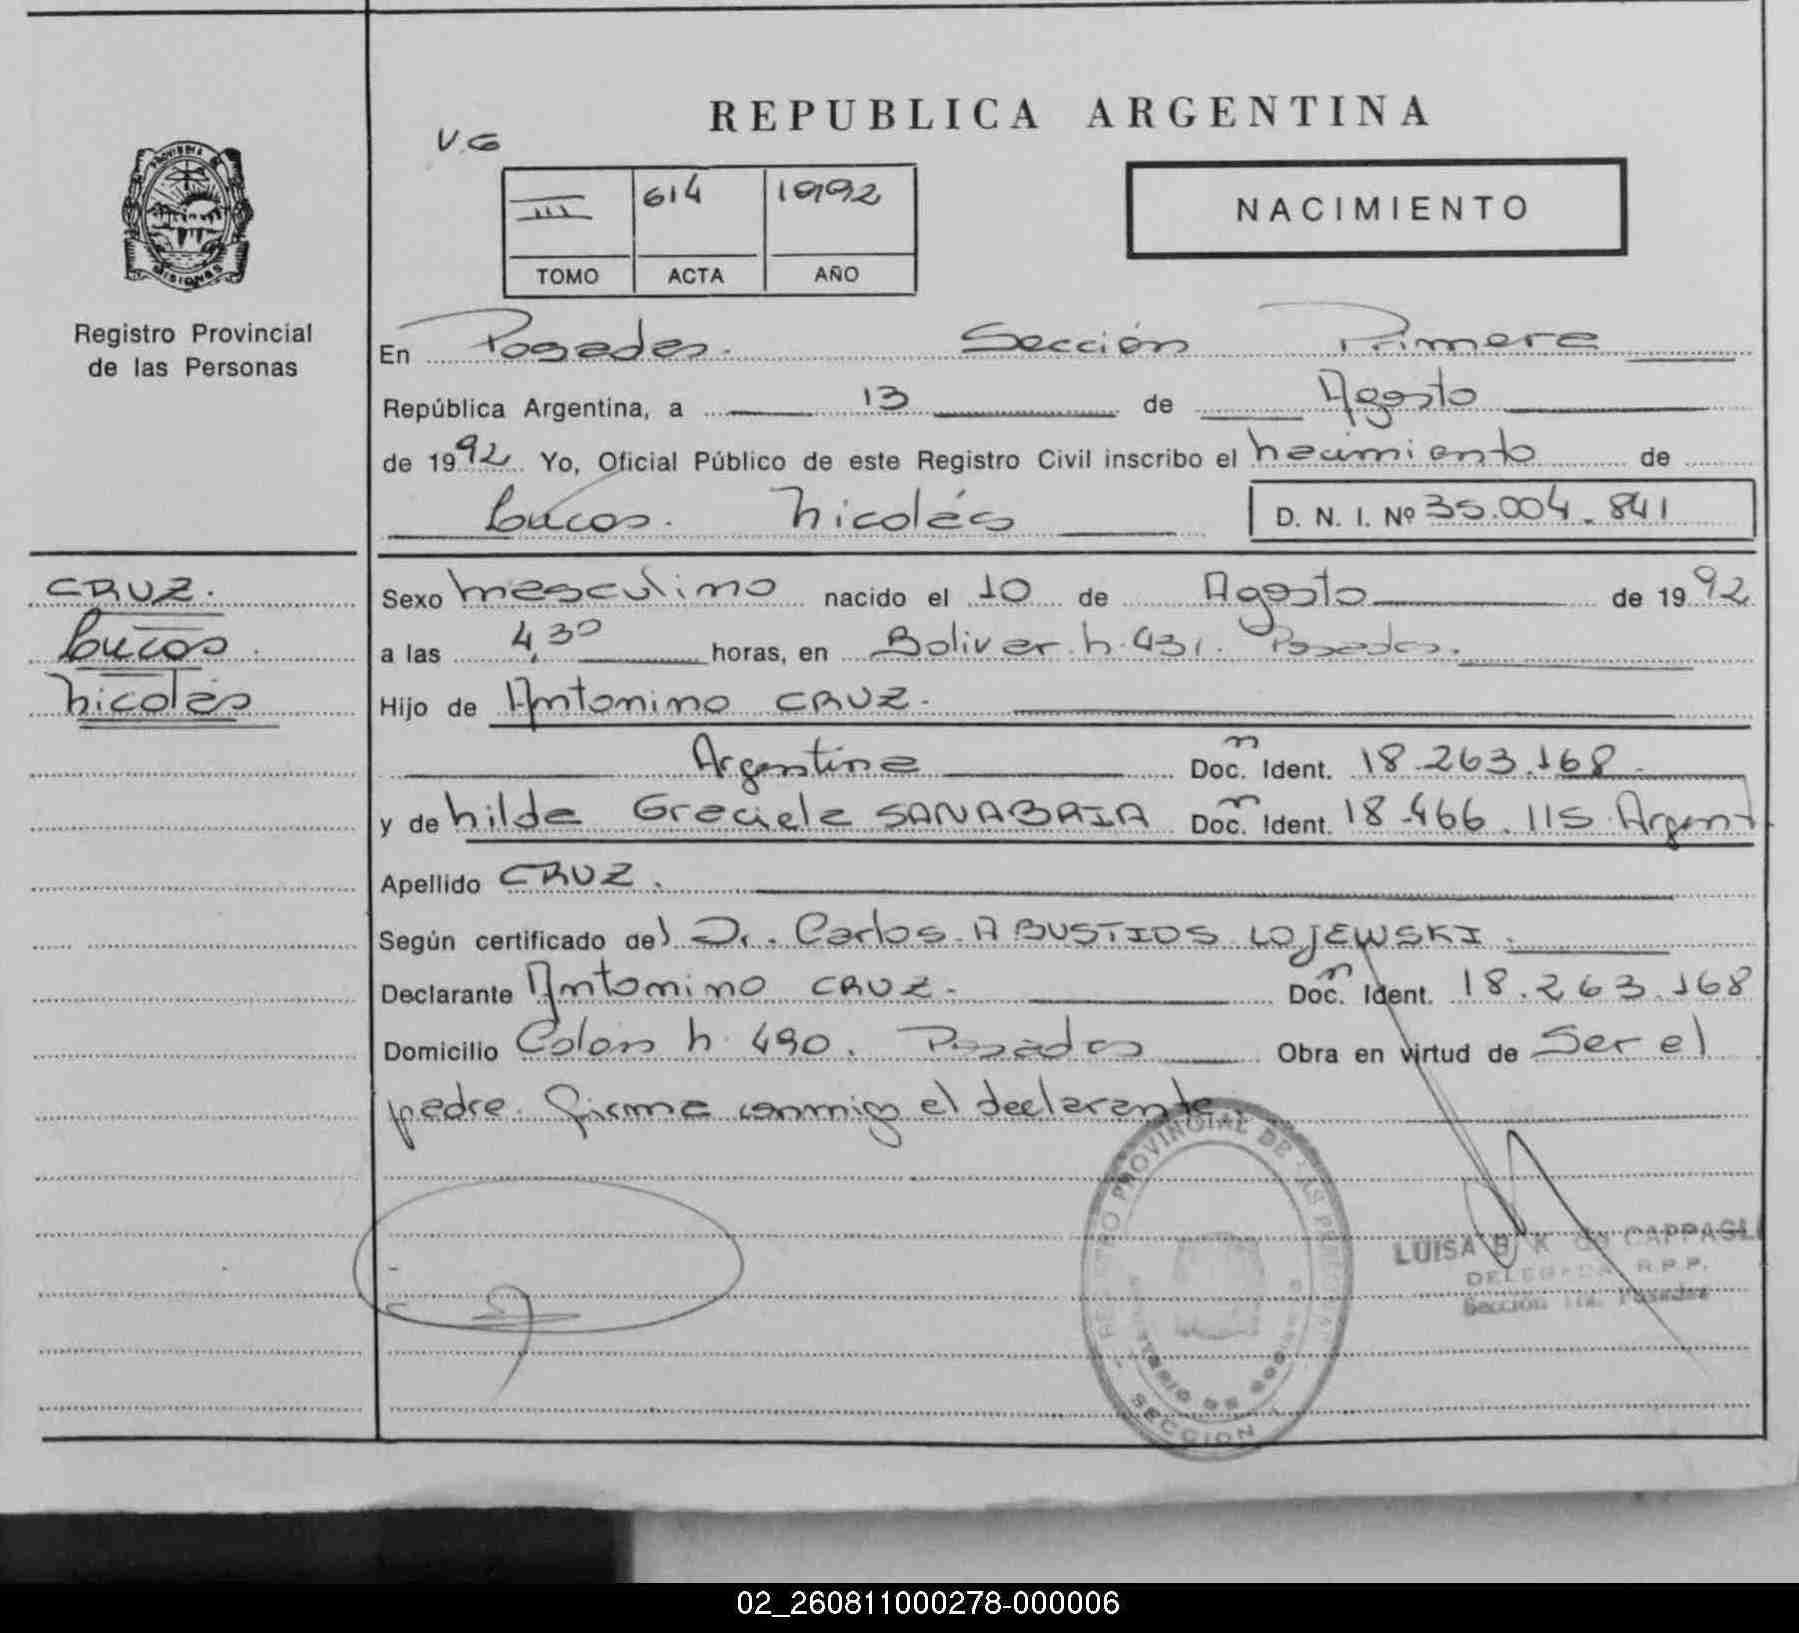 REPUBLICA ARGENTINA
V.G
PROVINCIA DE
MISIONES
Registro Provincial
de las Personas
III 614 1992
TOMO ACTA AÑO
NACIMIENTO
En Posadas. Sección Primera
República Argentina, a 13 de Agosto
de 1992 Yo, Oficial Público de este Registro Civil inscribo el nacimiento de
Lucas Nicolás D. N. I. Nº 35.004.841
CRUZ.
Lucas
Nicolás
Sexo masculino nacido el 10 de Agosto de 1992
a las 4,30 horas, en Bolivar n. 431. Posadas.
Hijo de Antonino CRUZ.
Argentina Doc. n Ident. 18.263.168.
y de Nilda Graciela SANABRIA Doc. n Ident. 18.466.115 Argent
Apellido CRUZ.
Según certificado del Dr. Carlos A BUSTIOS LOJEWSKI.
Declarante Antonino CRUZ. Doc. n Ident. 18.263.168
Domicilio Colón n. 490. Posadas Obra en virtud de Ser el
padre. Firma conmigo el declarante.
REGISTRO PROVINCIAL DE LAS PERSONAS
SECCION
LUISA B K de CAPPAGLI
DELEGADA R.P.P.
Sección 1ra. Posadas
02_260811000278-000006